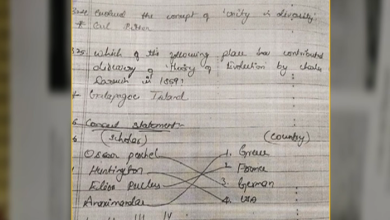 evolved the concept of 'unity in diversity'
Carl Ritter
which of the following place has contributed
discovery of 'Theory of Evolution by charles
Darwin in 1859?
Galapagos Island
Correct statement
(scholar) (country)
Oscar peschel 1. Greece
Huntington 2. France
Elise Reclus 3. German
Anaximander 4. USA
III IV